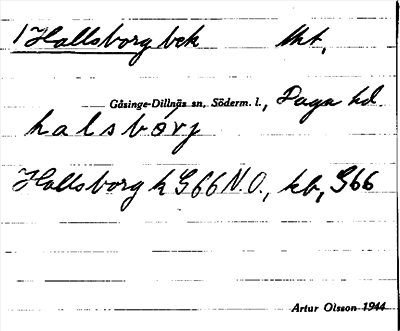 1 Hallsborg bek lht,
Gåsinge-Dillnäs sn, Söderm. l., Daga hd
halsbørj
Hallsborg h G66 N.O., kb, G66
Artur Olsson 1944